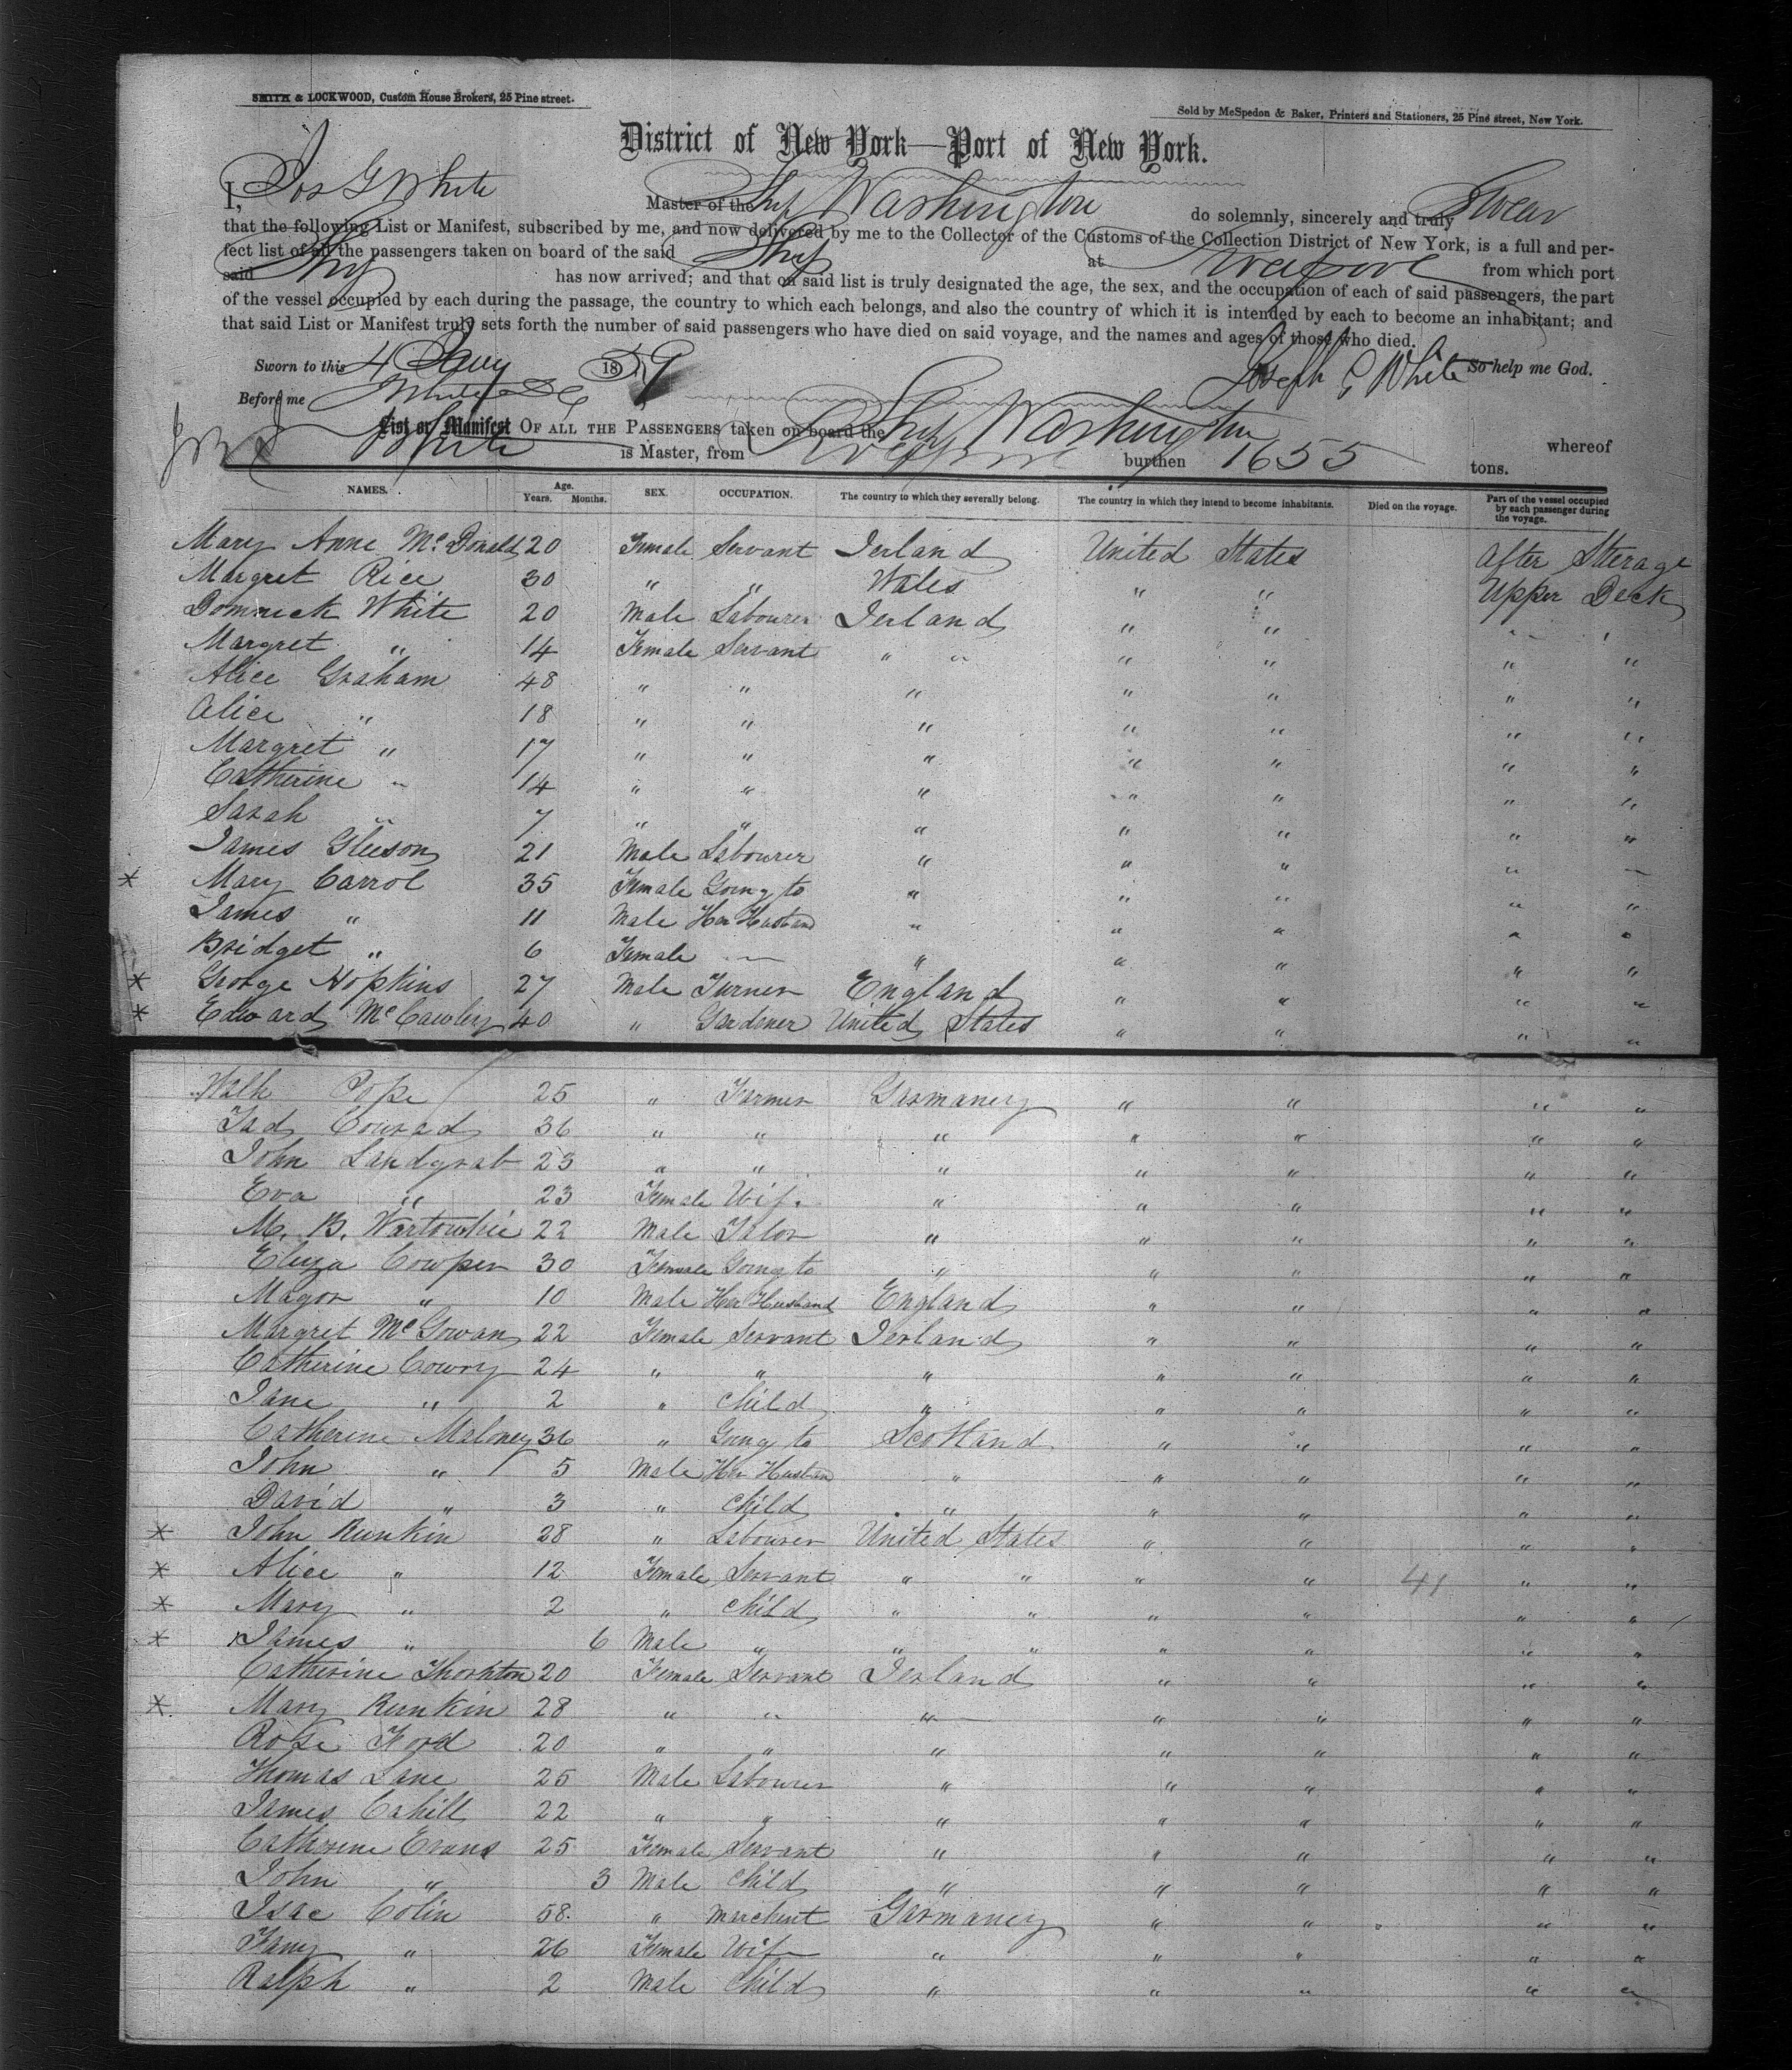 SMITH & LOCKWOOD, Custom House Brokers, 25 Pine street.
Sold by McSpedon & Baker, Printers and Stationers, 25 Pine street, New York.
District of New York—Port of New York.
I, Jos G White Master of the Ship Washington do solemnly, sincerely and truly Swear
that the following List or Manifest, subscribed by me, and now delivered by me to the Collector of the Customs of the Collection District of New York, is a full and per-
fect list of all the passengers taken on board of the said Ship at Liverpool from which port
said Ship has now arrived; and that on said list is truly designated the age, the sex, and the occupation of each of said passengers, the part
of the vessel occupied by each during the passage, the country to which each belongs, and also the country of which it is intended by each to become an inhabitant; and
that said List or Manifest truly sets forth the number of said passengers who have died on said voyage, and the names and ages of those who died.
Sworn to this 4 Jany 1859 Joseph G White So help me God.
Before me
List or Manifest OF ALL THE PASSENGERS taken on board the Ship Washington whereof
White is Master, from Liverpool burthen 1655 tons.
NAMES. Age. Years. Months. SEX. OCCUPATION. The country to which they severally belong. The country in which they intend to become inhabitants. Died on the voyage. Part of the vessel occupied by each passenger during the voyage.
Mary Anne McDonald 20 Female Servant Ierland United States After Sterage
Margret Rice 30 " " Wales " " Upper Deck
Domnick White 20 Male Labourer Ierland " " " "
Margret " 14 Female Servant " " " " " "
Alice Graham 48 " " " " " " "
Alice " 18 " " " " " " "
Margret " 17 " " " " " " "
Catherine " 14 " " " " " " "
Sarah " 7 " " " " " " "
James Gleeson 21 Male Labourer " " " " "
* Mary Carrol 35 Female Going to " " " " "
James " 11 Male Her Husband " " " " "
Bridget " 6 Female " " " " " "
* George Hopkins 27 Male Turner England " " " "
* Edward McCawley 40 " Gardener United States " " " "
Pope 25 " Farmer Garmaney " " " "
Conrad 36 " " " " " " "
John Landgrab 23 " " " " " " "
Eva " 23 Female Wife " " " " "
M. B. Wartowkie 22 Male Talor " " " " "
Eliza Cowper 30 Female Going to " " " " "
Magor " 10 Male Her Husband England " " " "
Margret McGowan 22 Female Servant Ierland " " " "
Catherine Cowry 24 " " " " " " "
Jane " 2 " Child " " " " "
Catherine Maloney 36 " Going to Scotland " " " "
John " 5 Male Her Husban " " " " "
David " 3 " Child " " " " "
* John Runkin 28 " Labourer United States " " " "
* Alice " 12 Female Servant " " " " 41 " "
* Mary " 2 " Child " " " " " "
* James " 6 Male " " " " " " "
Catherine Thornton 20 Female Servant Ierland " " " "
* Mary Runkin 28 " " " " " " "
Rose Ford 20 " " " " " " "
Thomas Lane 25 Male Labourer " " " " "
James Cahill 22 " " " " " " "
Catherine Evans 25 Female Servant " " " " "
John " 3 Male Child " " " " "
Isac Colin 58 " Marchent Garmaney " " " "
Fany " 26 Female Wife " " " " "
Ralph " 2 Male Child " " " " "